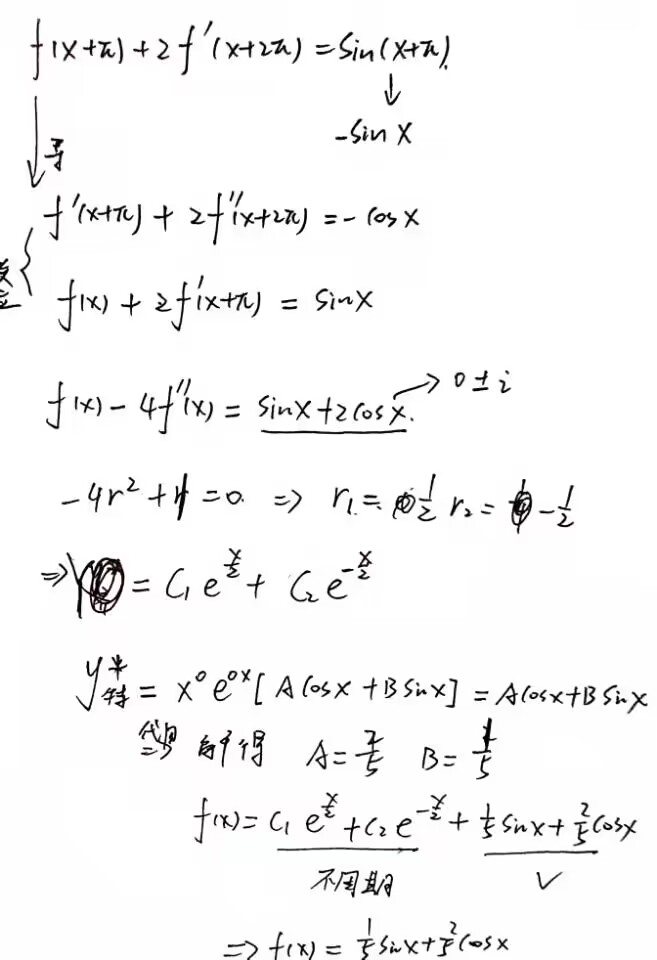 f(x+π)+2f'(x+2π)=sin(x+π).
-sin x
导
f'(x+π)+2f''(x+2π)=-cosx
f(x)+2f'(x+π)=sinx
f(x)-4f''(x)=sinx+2cosx. → 0±i
-4r²+1=0. ⇒ r₁=½ r₂=-½
⇒ y=C₁e^{x/2}+C₂e^{-x/2}
y*特=x⁰e^{0x}[Acosx+Bsinx]=Acosx+Bsinx
解得 A=2/5 B=1/5
f(x)=C₁e^{x/2}+C₂e^{-x/2}+1/5sinx+2/5cosx
不周期 √
⇒f(x)=1/5sinx+2/5cosx